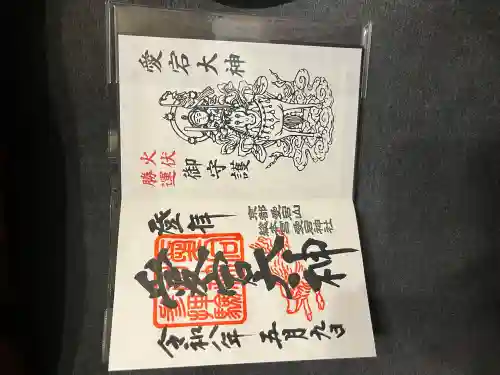 愛宕大神
火伏
勝運
御守護
登拝
京都愛宕山
総本宮愛宕神社
愛宕大神
令和八年五月九日